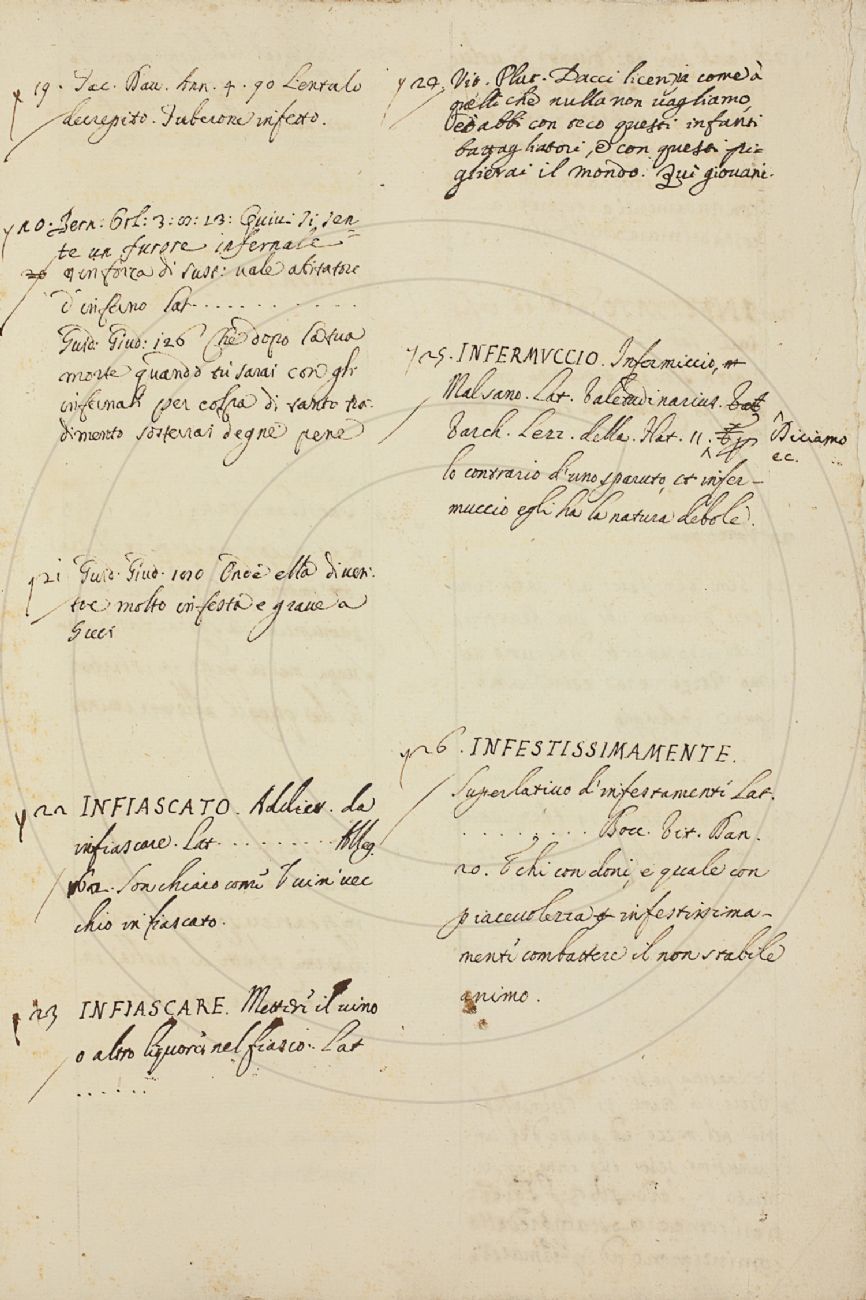 19. Tac. Dav. Ann. 4. 90 Lentulo
decrepito. Tuberone infesto.
20. Bern: Orl: 3: 8: 13: Quiui si sen-
te un furore infernale
20 in forza di sust: uale abitatore
d'inferno Lat. . . . . . . . . . . .
Guid: Giud: 126 Che dopo la sua
morte quando tu sarai con gli
infernali per colpa di tanto tra-
dimento sosterrai degne pene
21 Guid. Giud. 1010 Onde ella diuen-
tue molto infesta e graue a
Greci
22 INFIASCATO. Addiet. da
infiascare. Lat. . . . . . . . . . Alleg.
162. Son chiaro com'è 'l uin uec
chio infiascato.
23 INFIASCARE. Metter il uino
o altro liquore nel fiasco. Lat
. . . . . .
24. Vit. Plut. Dacci licenzia come à
quelli che nulla non uagliamo,
ed abbi con teco questi infanti
battagliatori, e con questi pi-
glierai il mondo. Qui giouani.
25. INFERMVCCIO. Infermiccio,
Malsano. Lat. Valetudinarius.
Varch. Lez. della. Nat. 11. Diciamo
ec.
lo contrario d'uno sparuto, et infer-
muccio egli ha la natura debole.
26. INFESTISSIMAMENTE.
Superlatiuo d'infestamente Lat.
. . . . . . . . . Bocc. Vit. Dan.
20. E chi con doni, e quale con
piaceuolezza infestissima-
mente combattere il non stabile
animo.